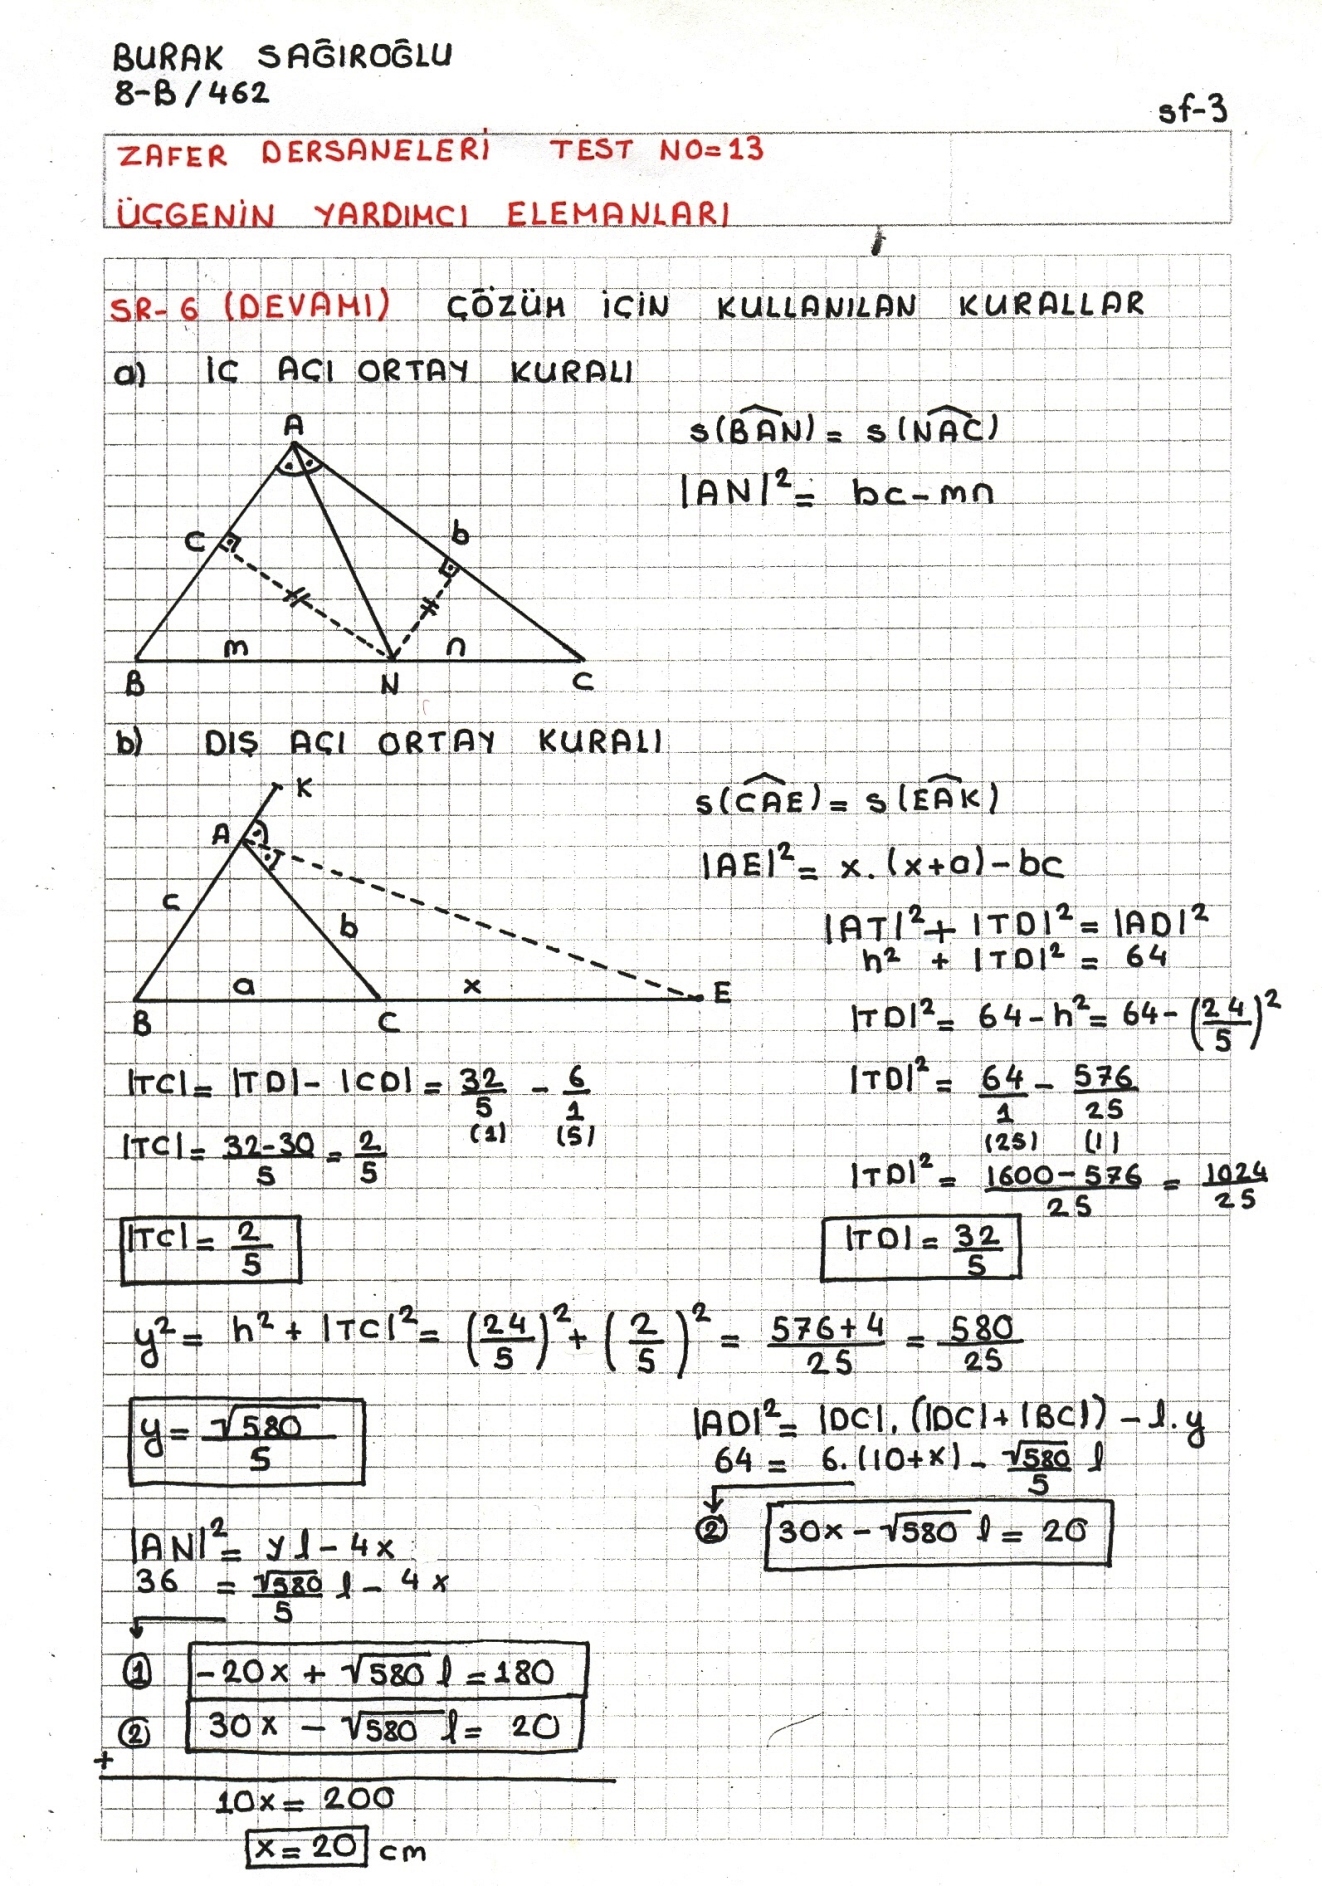 BURAK SAĞIROĞLU
8-B/462
sf-3
ZAFER DERSANELERİ TEST NO=13
ÜÇGENİN YARDIMCI ELEMANLARI
SR-6 (DEVAMI) ÇÖZÜM İÇİN KULLANILAN KURALLAR
a) İÇ AÇI ORTAY KURALI
A
s(BAN) = s(NAC)
|AN|² = bc-mn
c
b
m
n
B
N
C
b) DIŞ AÇI ORTAY KURALI
K
A
s(CAE) = s(EAK)
|AE|² = x.(x+a)-bc
c
b
a
x
B
C
E
|AT|² + |TD|² = |AD|²
h² + |TD|² = 64
|TD|² = 64 - h² = 64 - (24/5)²
|TD|² = 64/1 - 576/25
(25) (1)
|TD|² = 1600-576/25 = 1024/25
|TD| = 32/5
|TC| = |TD| - |CD| = 32/5 - 6/1
(1) (5)
|TC| = 32-30/5 = 2/5
|TC| = 2/5
y² = h² + |TC|² = (24/5)² + (2/5)² = 576+4/25 = 580/25
y = √580/5
|AD|² = |DC|.(|DC|+|BC|) - l.y
64 = 6.(10+x) - √580/5 l
② 30x - √580 l = 20
|AN|² = yl - 4x
36 = √580/5 l - 4x
① -20x + √580 l = 180
② 30x - √580 l = 20
+
10x = 200
x = 20 cm